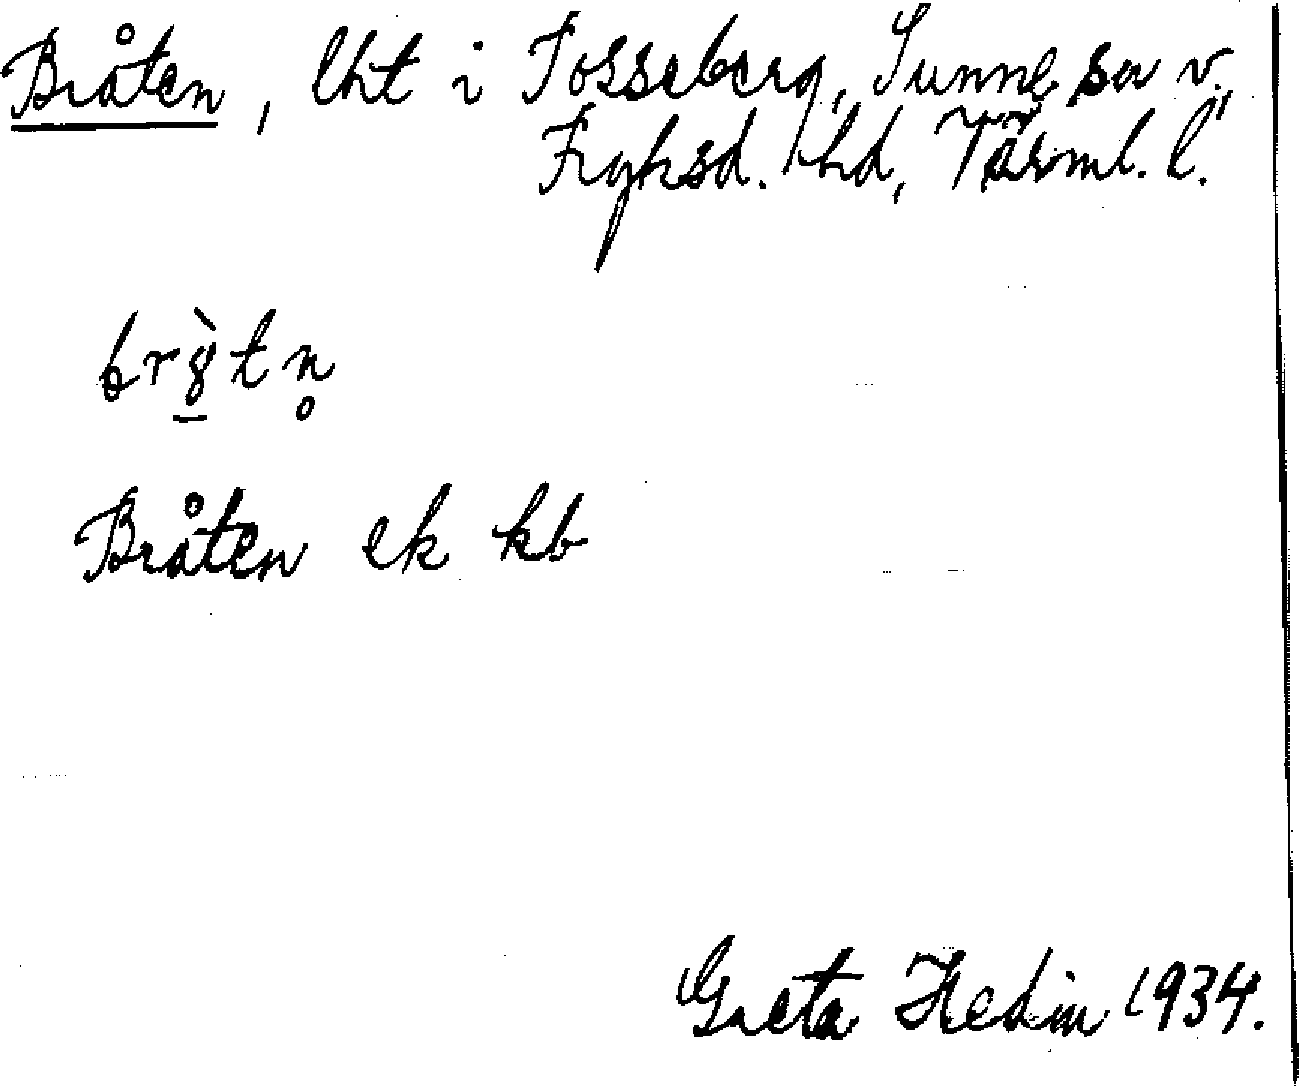 Bråten, lht i Fosseberg, Sunne sn v.
Fryksd. hd, Värml. l.
br8̲̀tn̥
Bråten ek kb
Greta Hedin 1934.